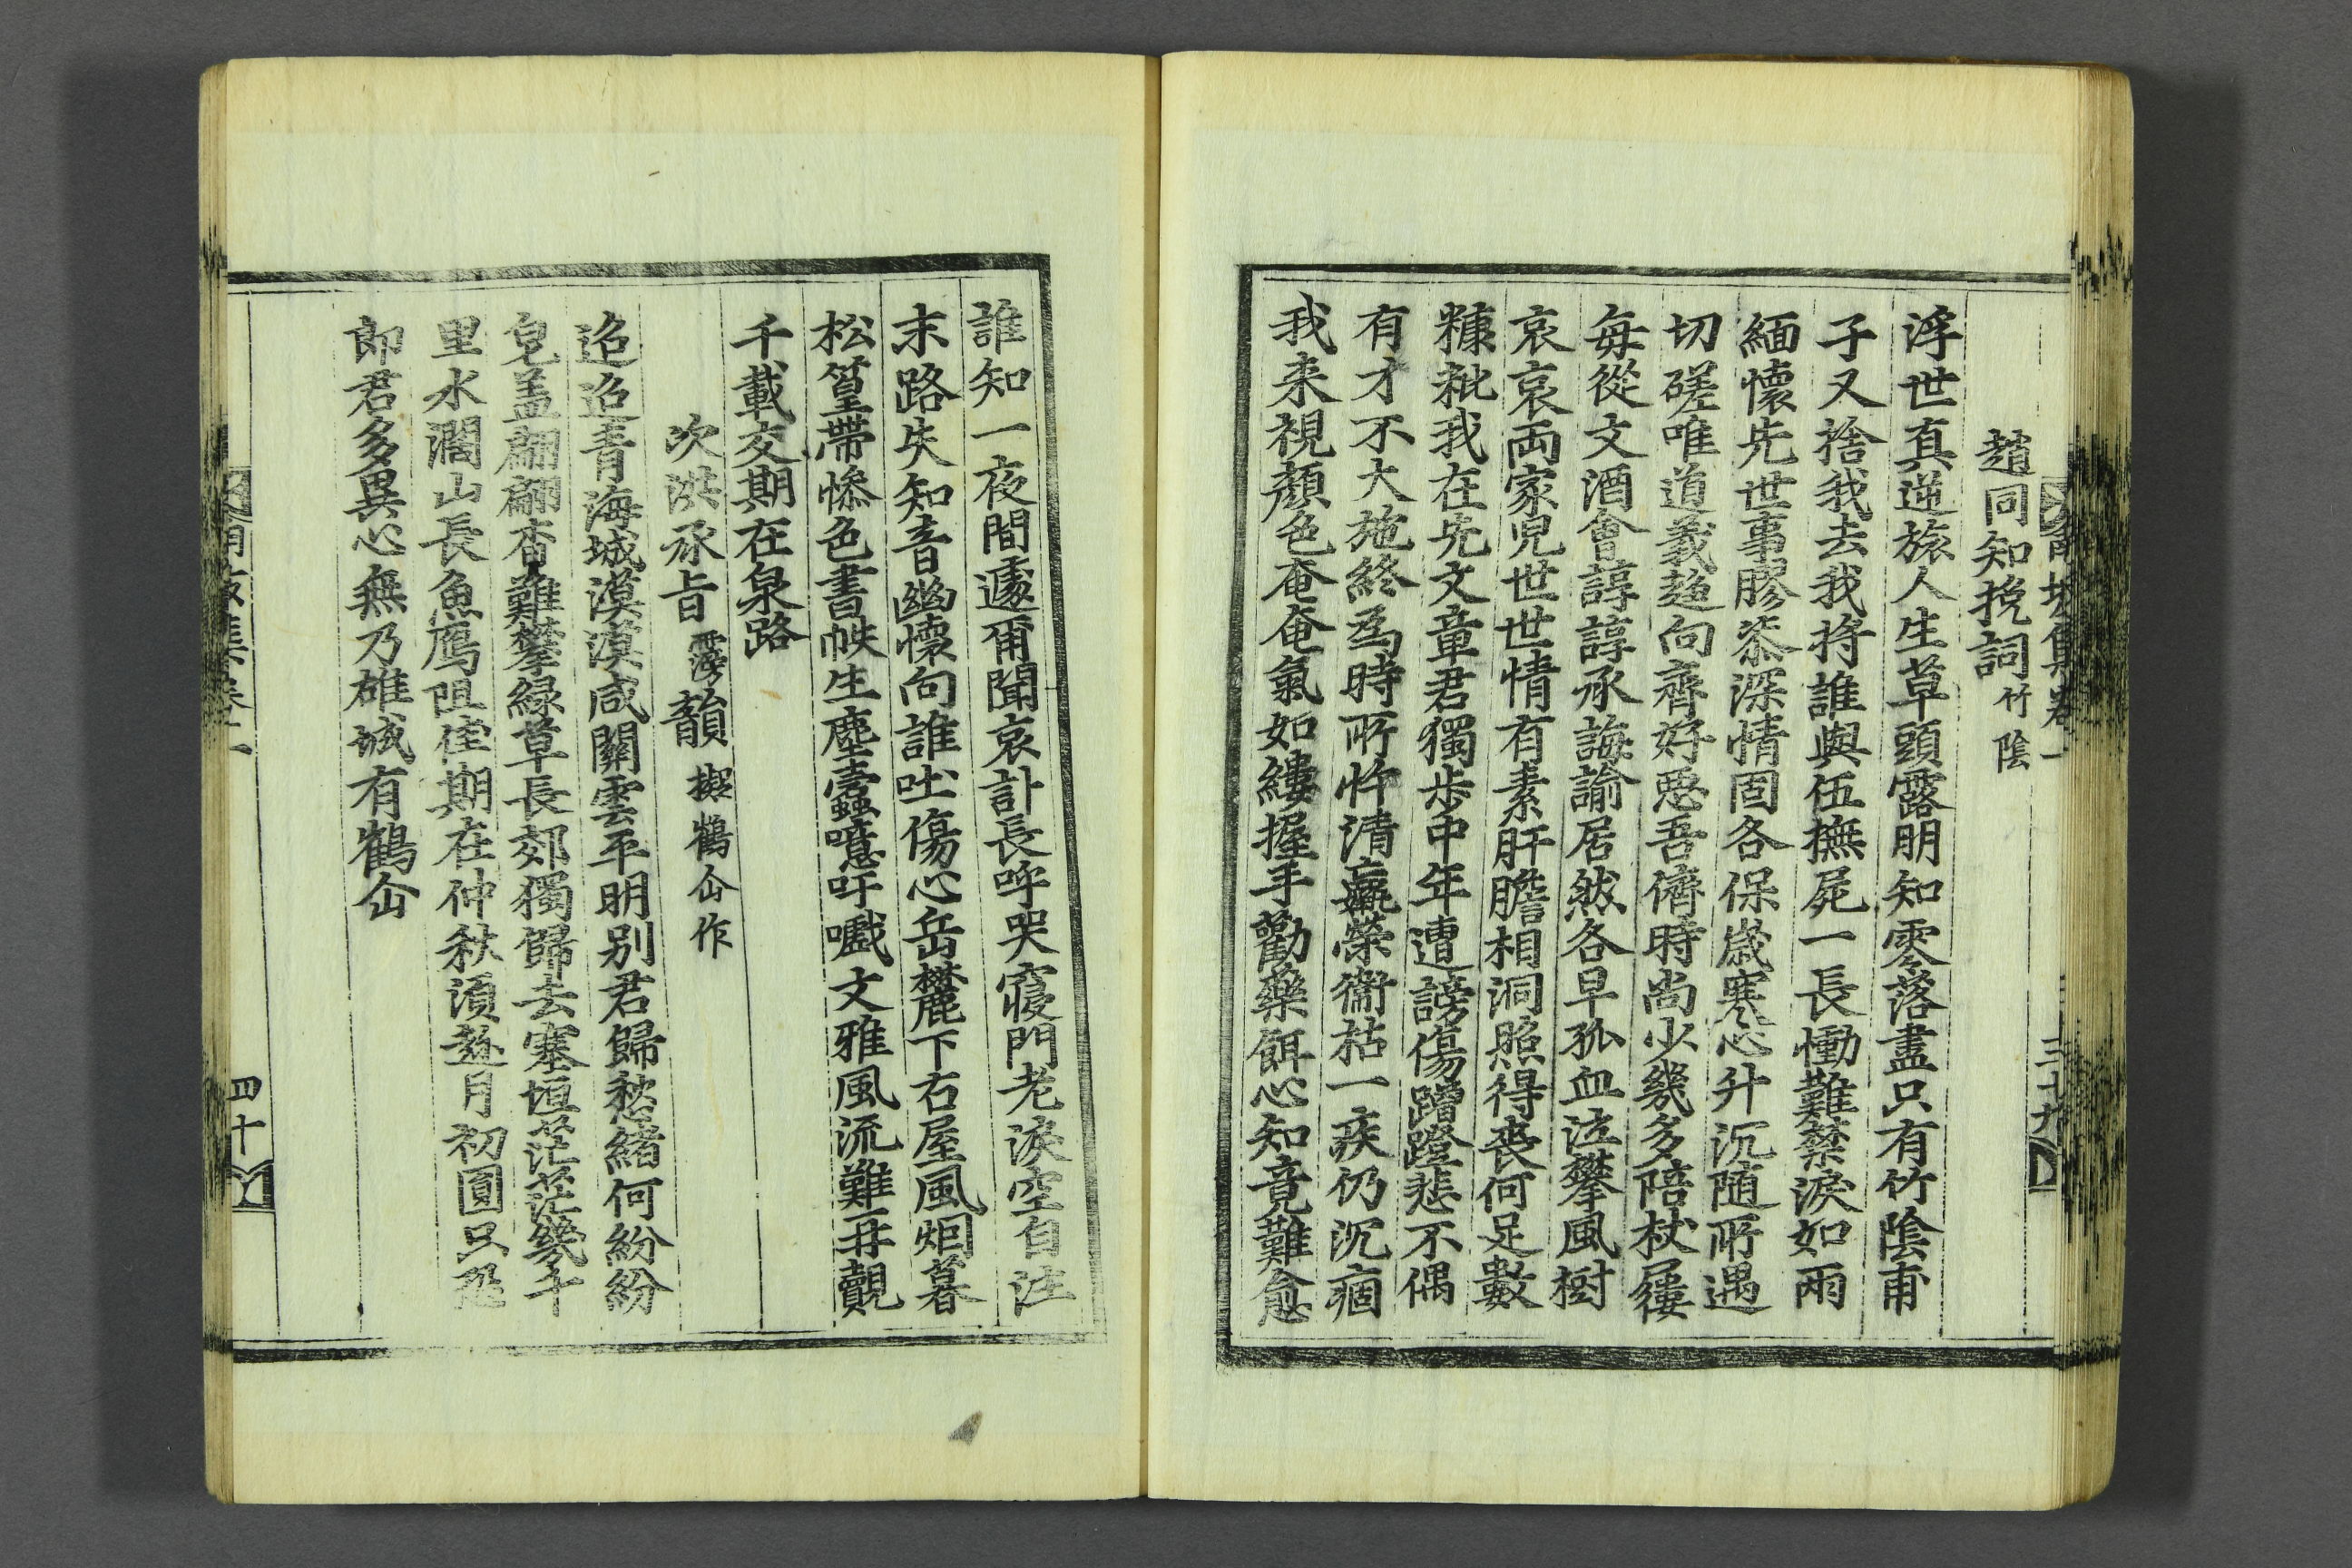 趙同知挽詞 竹陰
浮世真逆旅人生草頭露明知零落盡只有竹陰甫
子又捨我去我將誰與伍撫屍一長慟難禁淚如雨
緬懷先世事膠桼深情固各保歲寒心升沉随所遇
切磋唯道義趍向齊好惡吾儕時尚少幾多陪杖屨
每從文酒會諄諄承誨諭居然各早孤血泣攀風樹
哀哀両家兒世世情有素肝膽相洞照得喪何足數
糠秕我在先文章君獨步中年遭謗傷蹭蹬悲不偶
有才不大施終為時所忤清羸榮衛枯一疾仍沉痼
我来視顏色奄奄氣如縷握手勸藥餌心知竟難愈
誰知一夜間遽爾聞哀訃長呼哭寢門老淚空自注
末路失知音幽懷向誰吐傷心岳麓下石屋風烟暮
松篁帶慘色書帙生塵蠧噫吁嚱文雅風流難再覿
千載交期在泉路
次洪承旨 霶 韻 擬鶴仚作
迢迢青海城漠漠咸關雲平明別君歸愁緒何紛紛
皂盖翩翩杳難攀綠草長郊獨歸去塞垣茫茫幾千
里水濶山長魚鴈阻佳期在仲秋須趂月初圓只恐
郎君多異心無乃雄城有鶴仚
四十